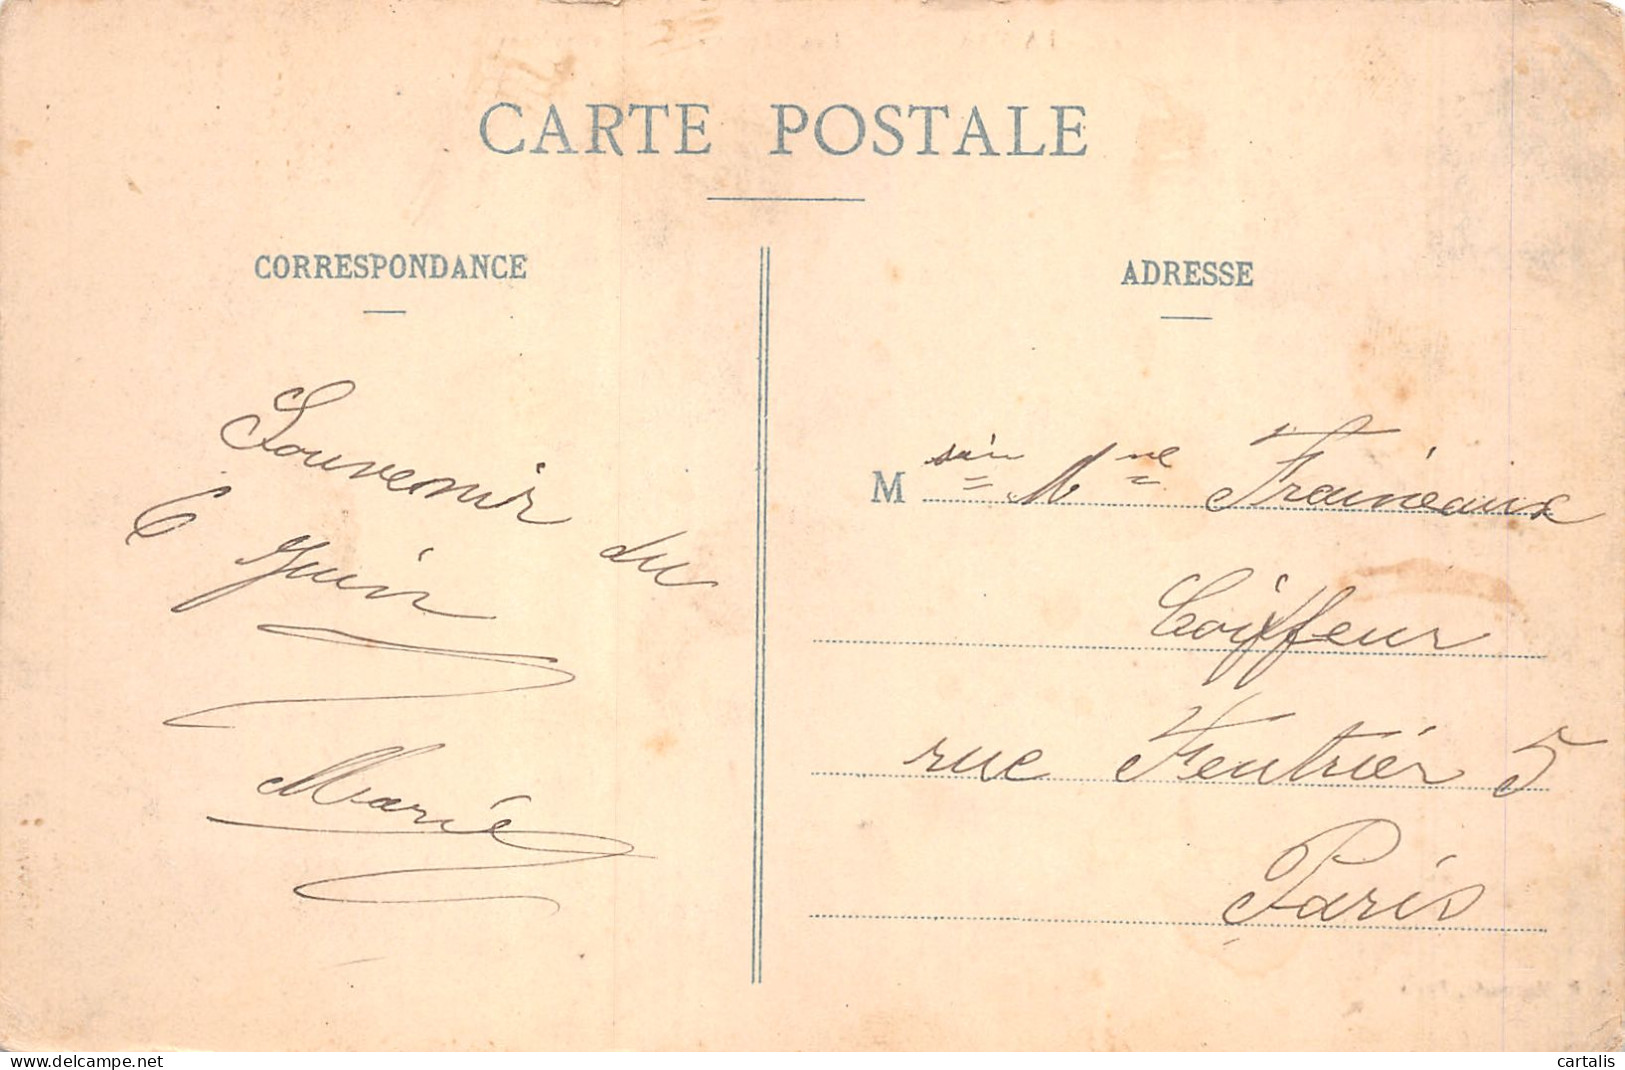 CARTE POSTALE
CORRESPONDANCE
Souvenir du
6 Juin
Marie
ADRESSE
M sieur Mme Fraineaux
Coiffeur
rue Feutrier 5
Paris
www.delcampe.net
cartalis